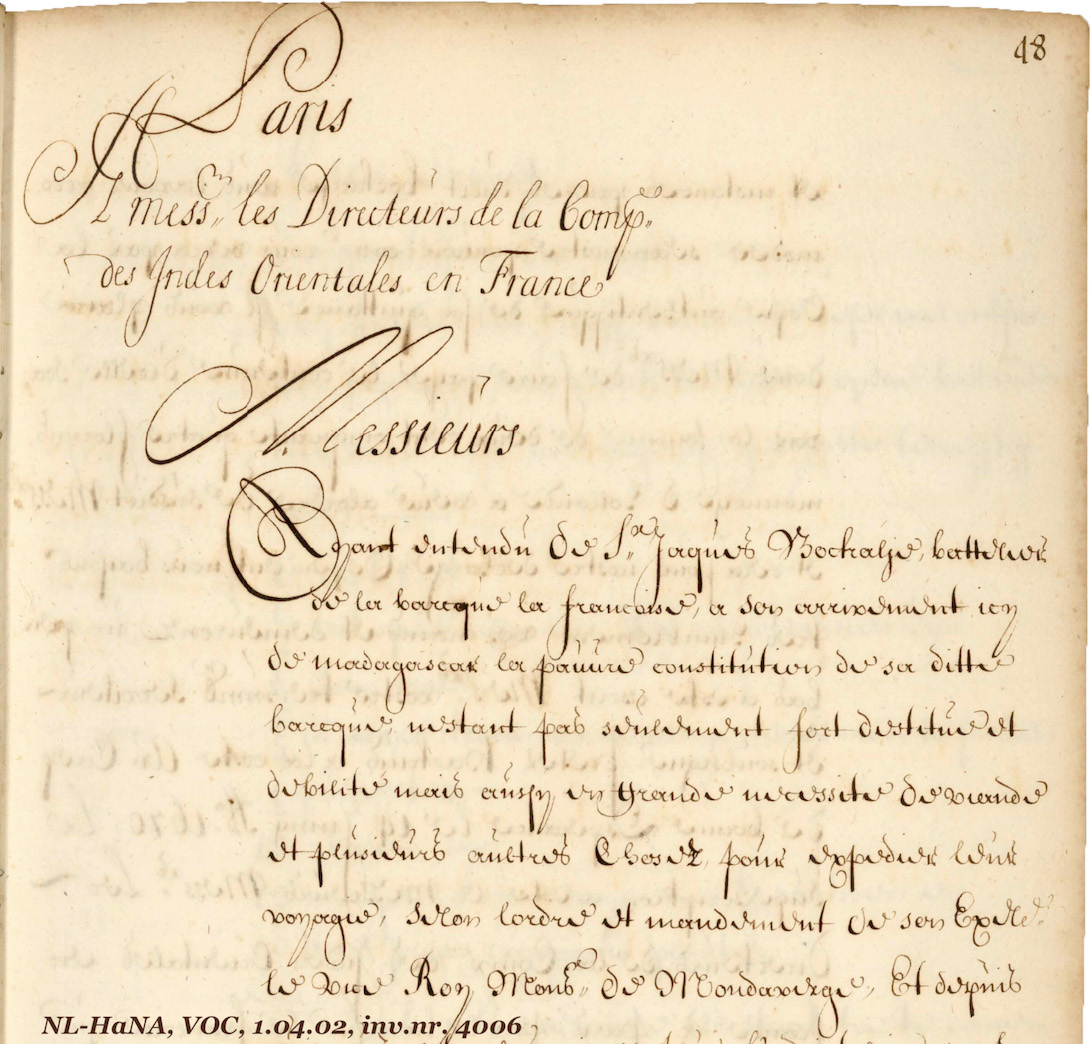 48
A Paris
A mess.rs les Directeurs de la Comp.e
des Indes Orientales en France
Messieurs
Ayant entendu de S.r Jaques Bockalje, battelier
de la barcque la francoise, a son arrivement icy
de madagascar la pauure constitution de sa ditte
barcque, nestant pas seulement fort destitue et
debilité mais aussy en grande necessite de viande
et plusieurs aultres Chosez, pour expedier leur
voyagie, selon lordre et mandement de son Exele.
le vice Roy Mons.r de Mondaverge, Et depuis
NL-HaNA, VOC, 1.04.02, inv.nr. 4006